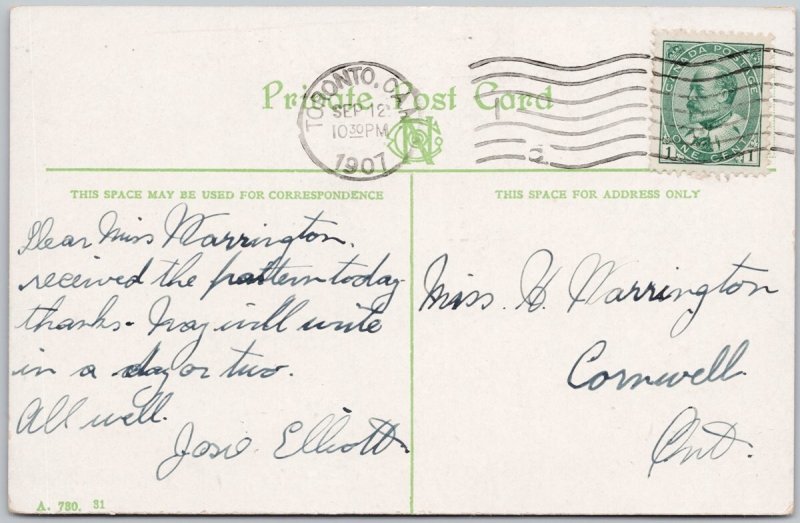 Private Post Card
TORONTO, CANADA
SEP 12
10 30 PM
1907
CANADA POSTAGE
1 ONE CENT 1
THIS SPACE MAY BE USED FOR CORRESPONDENCE
THIS SPACE FOR ADDRESS ONLY
Dear Miss Warrington,
received the pattern today
thanks - May will write
in a day or two.
All well.
Josie Elliott
Miss. H. Warrington
Cornwell
Ont.
A. 730. 31